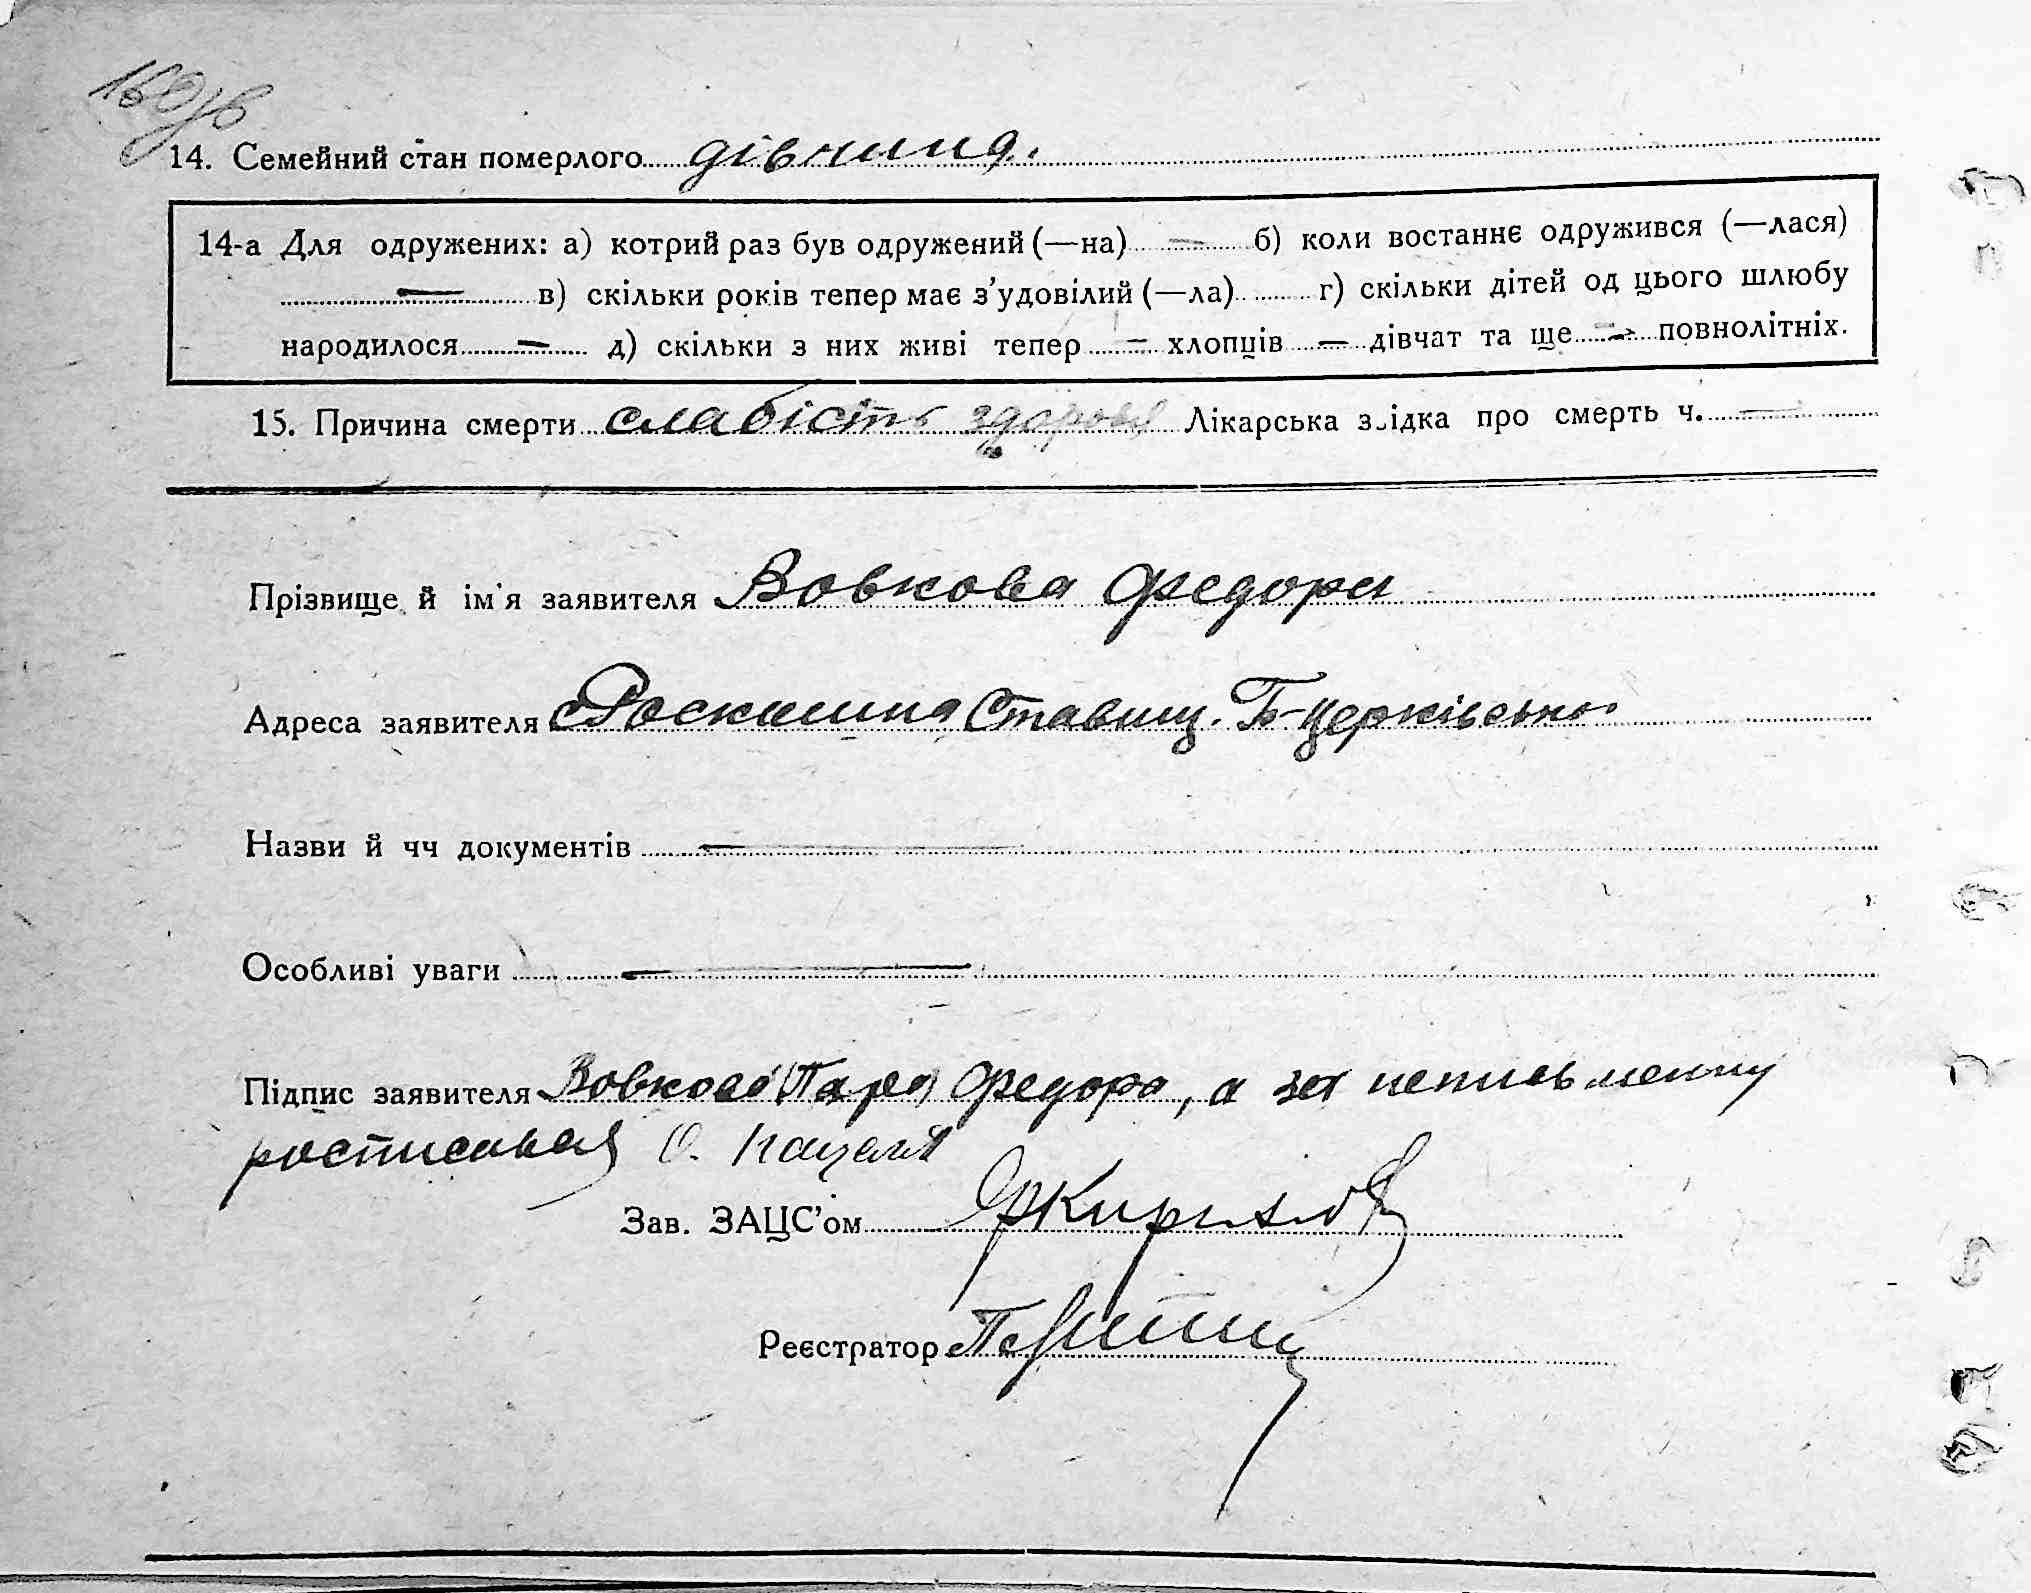 14. Семейний стан померлого дівчина.
14-а Для одружених: а) котрий раз був одружений (—на) — б) коли востаннє одружився (—лася)
— в) скільки років тепер має з’удовілий (—ла) г) скільки дітей од цього шлюбу
народилося — д) скільки з них живі тепер — хлопців — дівчат та ще — повнолітніх.
15. Причина смерти слабість здоровя Лікарська звідка про смерть ч. —
Прізвище й ім'я заявителя Вовкова Федора
Адреса заявителя с Роскишна Ставищ. Б-Церківсько
Назви й чч документів —
Особливі уваги —
Підпис заявителя Вовкова Федора, а за неписьменну
росписався О.
Зав. ЗАЦС’ом
Реєстратор